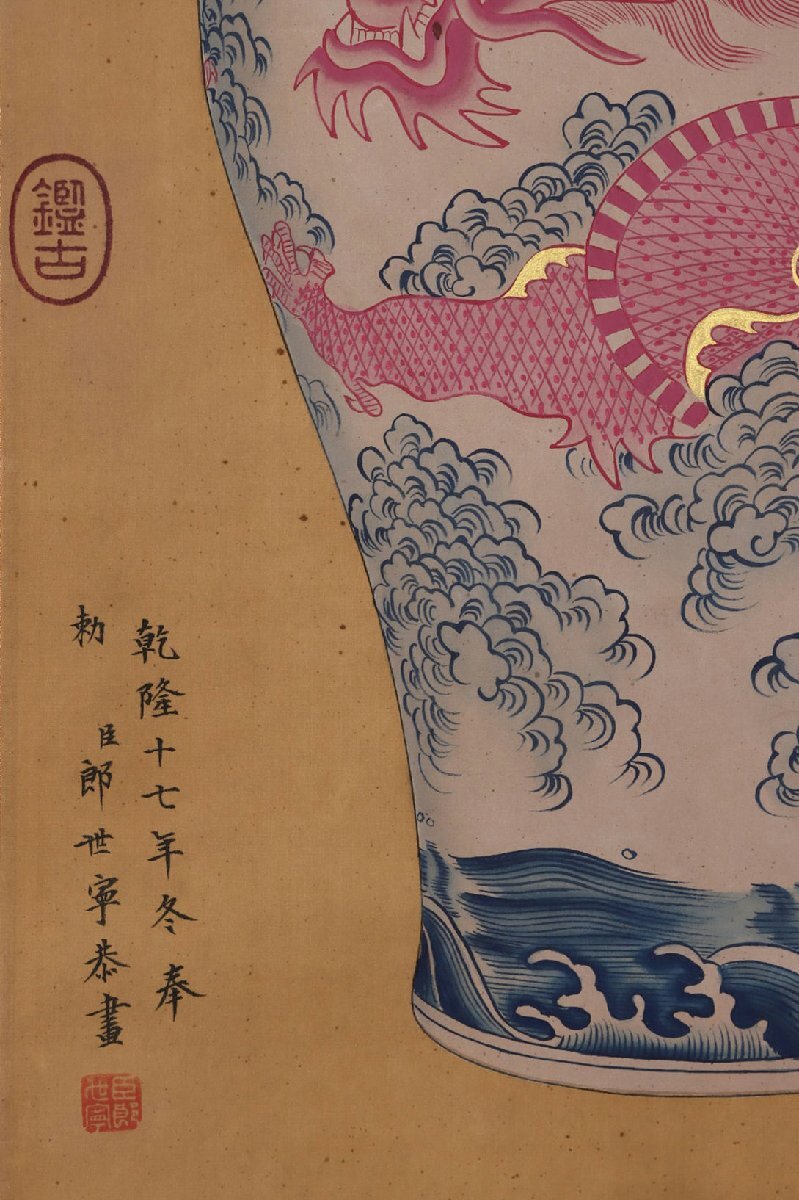 鑑古
乾隆十七年冬奉
勅
臣郎世寧恭畫
臣郎世寧